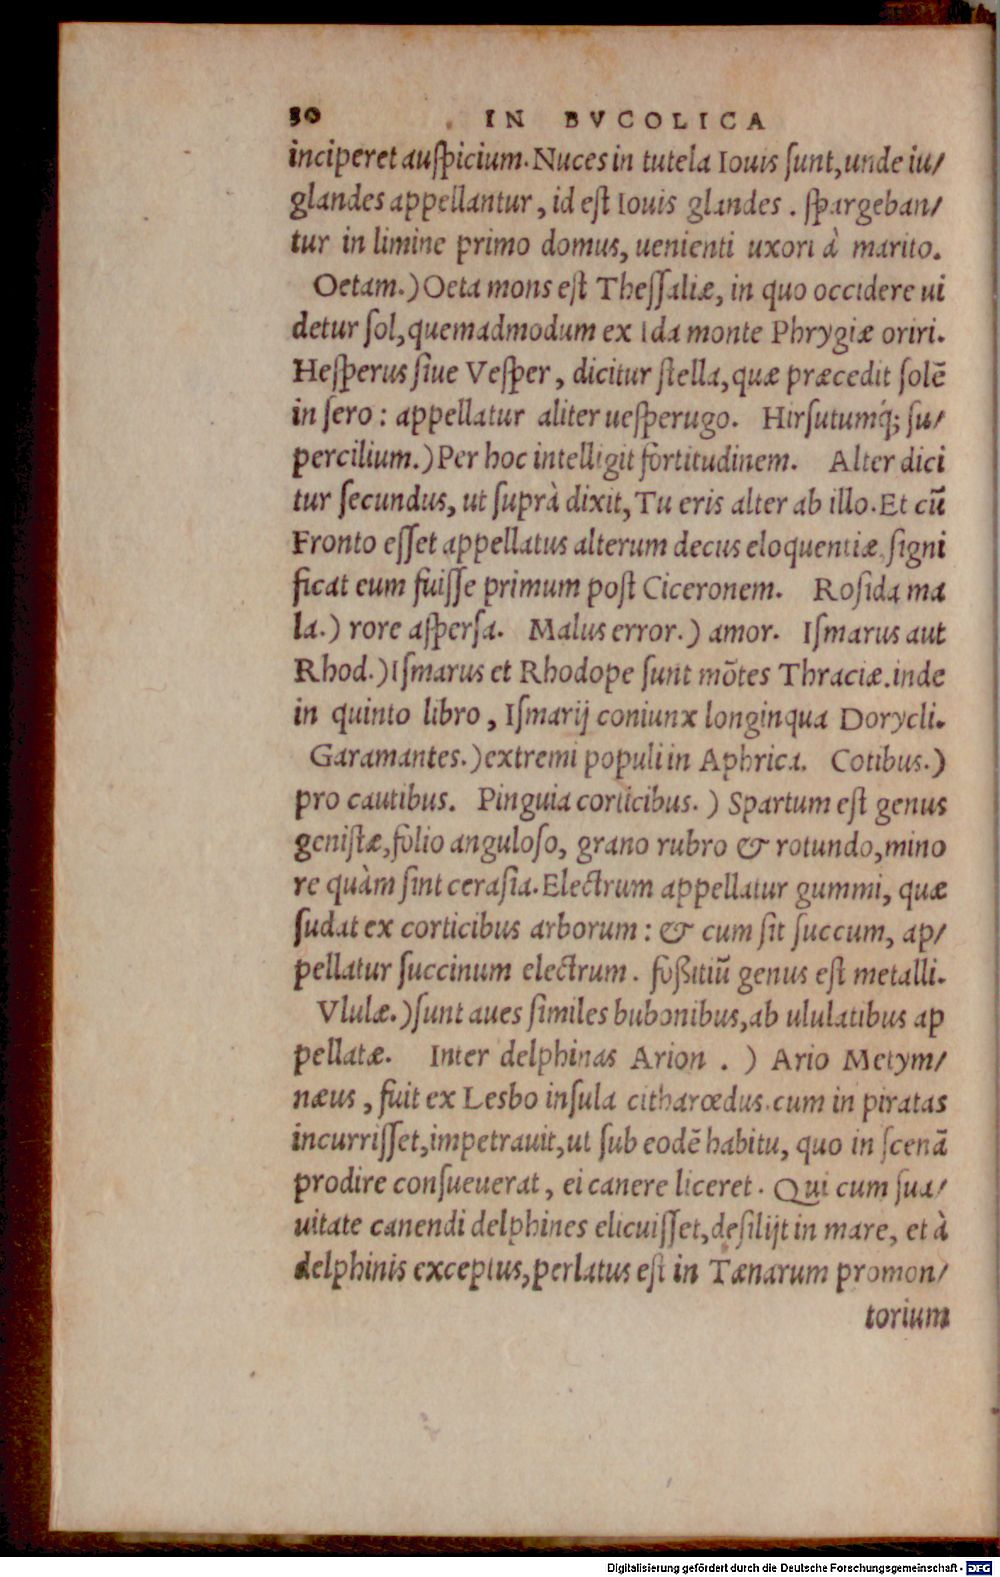 30 IN BVCOLICA
inciperet auſpicium. Nuces in tutela Iouis ſunt, unde iu/
glandes appellantur, id eſt Iouis glandes. ſpargeban/
tur in limine primo domus, uenienti uxori à marito.
Oetam.) Oeta mons eſt Theſſaliæ, in quo occidere ui
detur ſol, quemadmodum ex Ida monte Phrygiæ oriri.
Heſperus ſiue Veſper, dicitur ſtella, quæ præcedit ſolẽ
in ſero: appellatur aliter ueſperugo. Hirſutumq́; ſu/
percilium.) Per hoc intelligit fortitudinem. Alter dici
tur ſecundus, ut ſuprà dixit, Tu eris alter ab illo. Et cũ
Fronto eſſet appellatus alterum decus eloquentiæ, ſigni
ficat eum fuiſſe primum poſt Ciceronem. Roſida ma
la.) rore aſperſa. Malus error.) amor. Iſmarus aut
Rhod.) Iſmarus et Rhodope ſunt mõtes Thraciæ. inde
in quinto libro, Iſmarij coniunx longinqua Dorycli.
Garamantes.) extremi populi in Aphrica. Cotibus.)
pro cautibus. Pinguia corticibus.) Spartum eſt genus
geniſtæ, folio anguloſo, grano rubro & rotundo, mino
re quàm ſint ceraſia. Electrum appellatur gummi, quæ
ſudat ex corticibus arborum: & cum ſit ſuccum, ap/
pellatur ſuccinum electrum. foßitiũ genus eſt metalli.
Vlulæ.) ſunt aues ſimiles bubonibus, ab ululatibus ap
pellatæ. Inter delphinas Arion.) Ario Metym/
næus, fuit ex Lesbo inſula citharœdus. cum in piratas
incurriſſet, impetrauit, ut ſub eodẽ habitu, quo in ſcenã
prodire conſueuerat, ei canere liceret. Qui cum ſua/
uitate canendi delphines elicuiſſet, deſilijt in mare, et à
delphinis exceptus, perlatus eſt in Tænarum promon/
torium
Digitalisierung gefördert durch die Deutsche Forschungsgemeinschaft - DFG